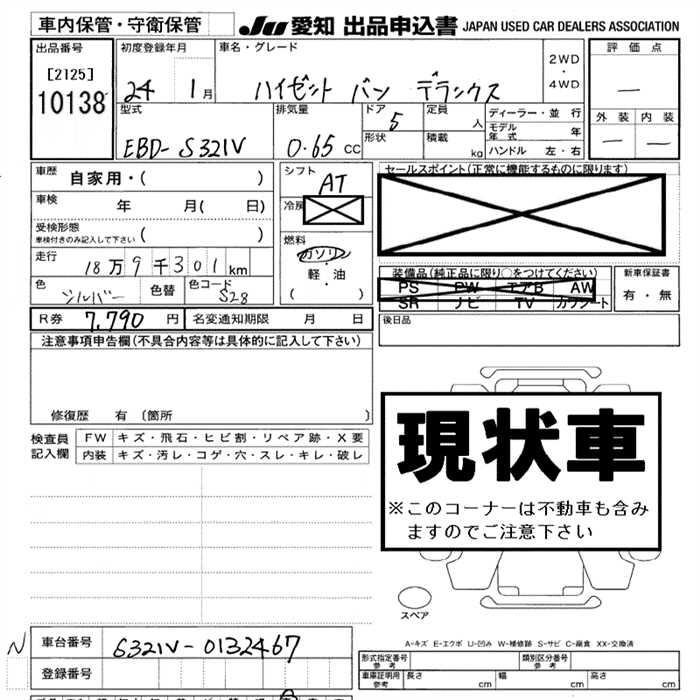 車内保管・守衛保管
JU 愛知 出品申込書 JAPAN USED CAR DEALERS ASSOCIATION
出品番号
[2125]
10138
初度登録年月
24 1月
車名・グレード
ハイゼット バン デラックス
2WD
・
4WD
評価点
—
外装 内装
— —
型式
EBD-S321V
排気量
0.65 CC
ドア 5
形状
定員 人
積載 kg
ディーラー・並行
モデル年式 年
ハンドル 左・右
車歴 自家用・( )
車検 年 月( 日)
受検形態
車検付きのみ記入して下さい ( )
走行 18万9千301km
色 シルバー 色替 色コード S28
シフト
AT
冷房
燃料
ガソリン
・
軽・油
( )
セールスポイント(正常に機能するものに限ります)
装備品(純正品に限り○をつけてください)
PS PW エアB AW
SR ナビ TV カワシート
新車保証書
有・無
R券 7,790円 名変通知期限 月 日
後日品
注意事項申告欄(不具合内容等は具体的に記入して下さい)
修復歴 有〔箇所 〕
検査員記入欄
FW キズ・飛石・ヒビ割・リペア跡・X要
内装 キズ・汚レ・コゲ・穴・スレ・キレ・破レ
現状車
※このコーナーは不動車も含み
ますのでご注意下さい
スペア
N
車台番号 S321V-0132467
登録番号
A-キズ E-エクボ U-凹み W-補修跡 S-サビ C-腐食 XX-交換済
形式指定番号 参考
類別区分番号 参考
車庫証明用 参考 長さ cm 幅 cm 高さ cm